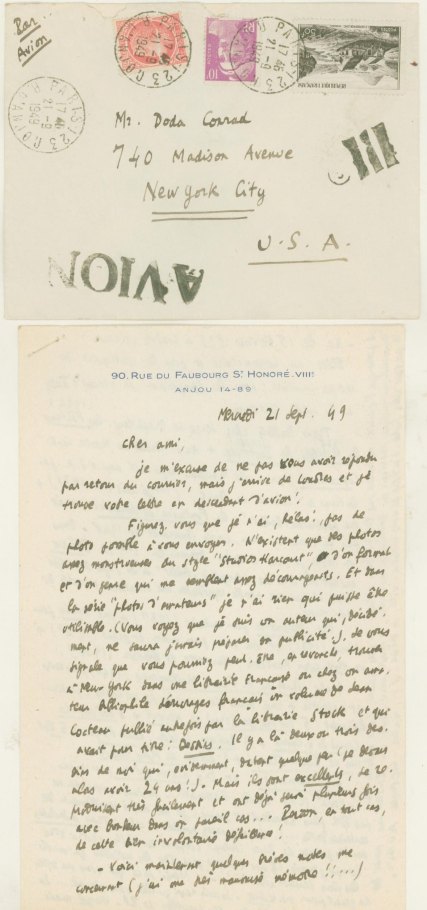 Par
Avion
PARIS 123
17 46
21 -9
1949
R. BOINARD
10
50F
REPUBLIQUE FRANÇAISE
Mr. Doda Conrad
740 Madison Avenue
New York City
U.S.A.
AVION
90. RUE DU FAUBOURG ST HONORÉ. VIIIe
ANJOU 14-89
Mercredi 21 Sept. 49
Cher ami,
je m'excuse de ne pas vous avoir répondu
par retour du courrier, mais j'arrive de Londres et je
trouve votre lettre en descendant d'avion!
Figurez vous que je n'ai, hélas! pas de
photo possible à vous envoyer. N'existent que des photos
assez monstrueuses du style "Studios Harcourt" d'un format
et d'un genre qui me semblent assez décourageants. Et dans
la série "photos d'amateurs" je n'ai rien qui puisse être
utilisable. (Vous voyez que je suis un auteur qui, décidé-
ment, ne saura jamais préparer sa publicité.). Je vous
signale que vous pourriez peut-être, en revanche, trouver
à New York dans une librairie française ou chez un ama-
teur bibliophile d'ouvrages français un volume de Jean
Cocteau publié autrefois par la librairie Stock et qui
avait pour titre: Dessins. Il y a là deux ou trois des-
sins de moi qui, évidemment, datent quelque peu (je devais
alors avoir 24 ans!). Mais ils sont excellents, se re-
produisent très facilement et ont déjà servi plusieurs fois
avec bonheur dans un pareil cas... Pardon, en tout cas,
de cette bien involontaire défaillance!
- Voici maintenant quelques brèves notes me
concernant (j'ai une très mauvaise mémoire!!...)